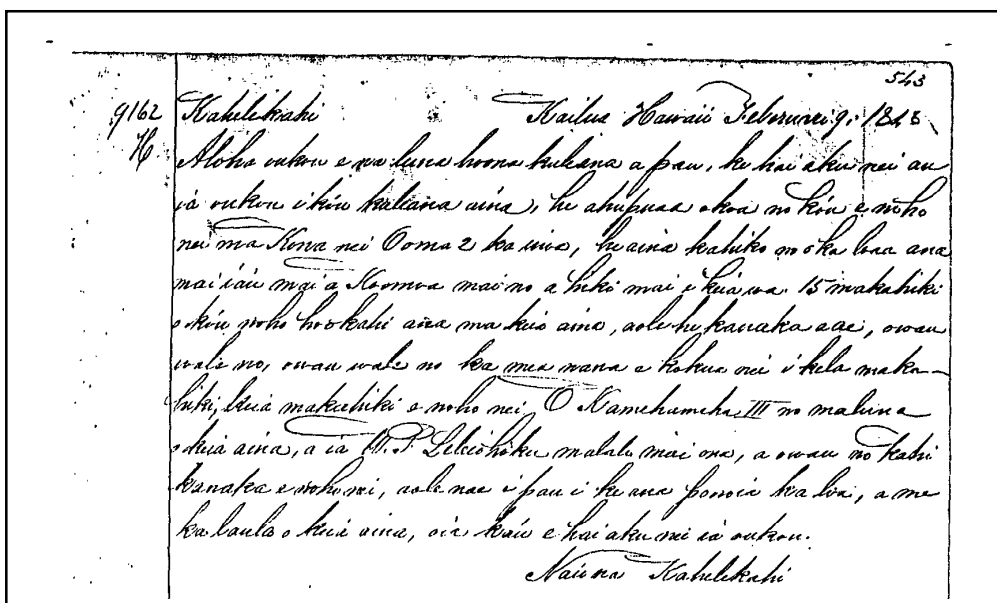 543
9162 Kahelekahi Kailua Hawaii Feberuari 9, 1848
H Aloha oukou e na luna hoona kuleana a pau, ke hai aku nei au
ia oukou i ko'u kuleana aina, he ahupuaa okoa no ko'u e noho
nei ma Kona nei Ooma 2 ka inoa, he aina kahiko no o ka loaa ana
mai ia'u mai a Koomoa mai no a hiki mai i keia wa. 15 makahiki
o ko'u noho hookahi ana ma keia aina, aole he kanaka aae, owau
wale no, owau wale no ka mea nana e kokua nei i kela maka-
hiki, keia makahiki e noho nei. O Kamehameha III no maluna
o keia aina, a ia W. P. Leleiohoku malalo mai ona, a owau no kahi
kanaka e noho nei, aole nae i pau i ke ana ponoia ka loa, a me
ka laula o keia aina, oia ka'u e hai aku nei ia oukou.
Na'u na Kahelekahi